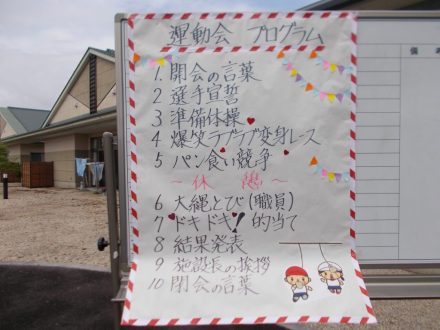 運動会 プログラム
1. 開会の言葉
2 選手宣誓
3 準備体操
4 爆笑ラブラブ変身レース
5 パン食い競争
～ 休 憩 ～
6 大縄とび(職員)
7 ドキドキ! 的当て
8 結果発表
9 施設長の挨拶
10 閉会の言葉
備